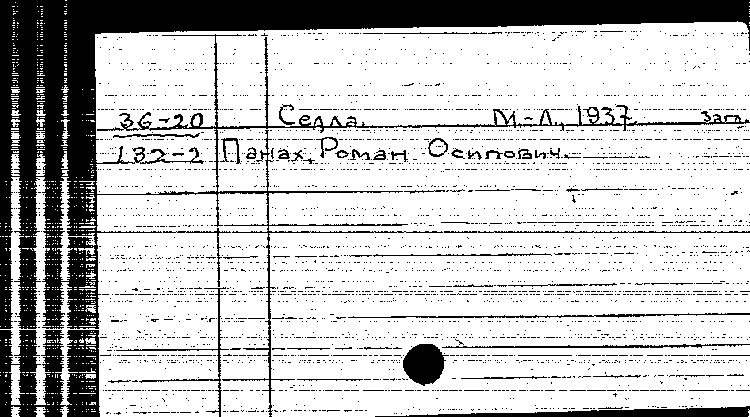 36-20 Седла. М.-Л., 1937 Загл.
132-2 Панах, Роман Осипович.